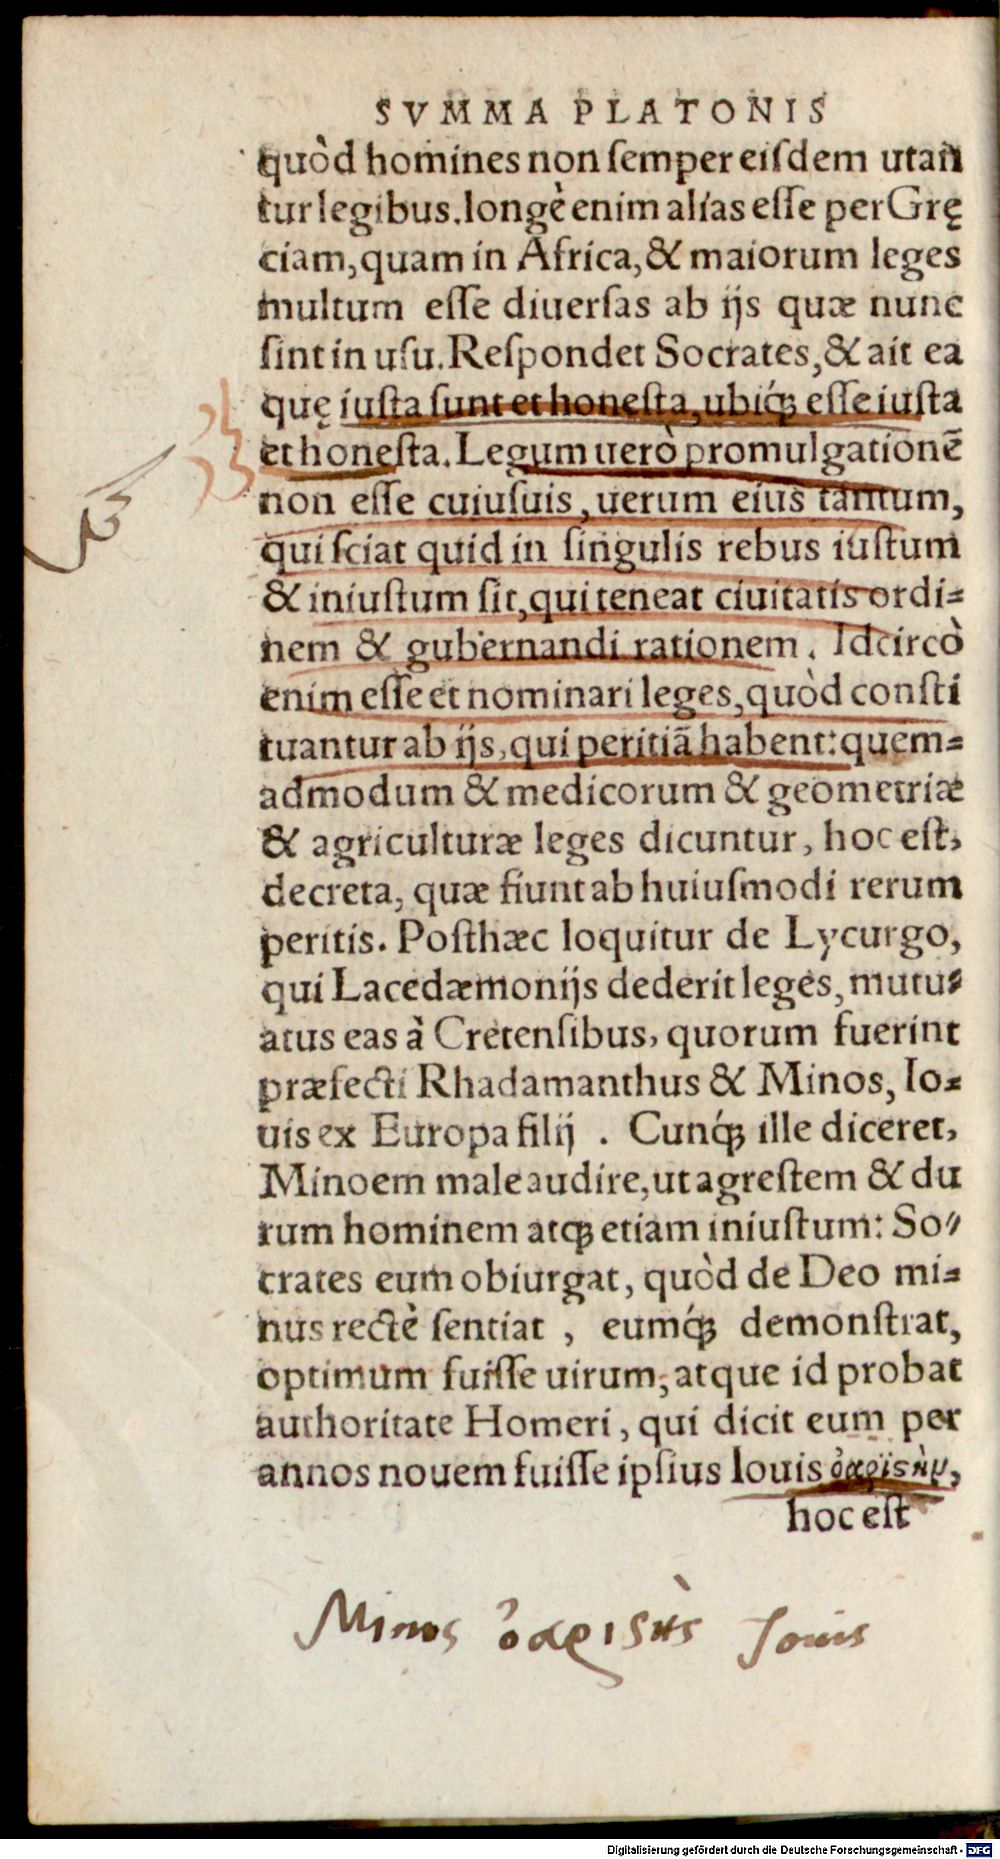 SVMMA PLATONIS
quòd homines non ſemper eiſdem utan
tur legibus. longè enim alías eſſe per Grę
ciam, quam in Africa, & maiorum leges
multum eſſe diuerſas ab ijs quæ nunc
ſint in uſu. Reſpondet Socrates, & ait ea
quę iuſta ſunt et honeſta, ubiq́ꝫ eſſe iuſta
et honeſta. Legum uerò promulgationẽ
non eſſe cuiuſuis, uerum eius tantum,
qui ſciat quid in ſingulis rebus iuſtum
& iniuſtum ſit, qui teneat ciuitatis ordi=
nem & gubernandi rationem. Idcircò
enim eſſe et nominari leges, quòd conſti
tuantur ab ijs, qui peritiã habent: quem=
admodum & medicorum & geometriæ
& agriculturæ leges dicuntur, hoc eſt,
decreta, quæ fiunt ab huiuſmodi rerum
peritis. Poſthæc loquitur de Lycurgo,
qui Lacedæmonijs dederit leges, mutu=
atus eas à Cretenſibus, quorum fuerint
præfecti Rhadamanthus & Minos, Io=
uis ex Europa filij . Cunq́ꝫ ille diceret,
Minoem male audire, ut agreſtem & du
rum hominem atqꝫ etiam iniuſtum: So=
crates eum obiurgat, quòd de Deo mi=
nus rectè ſentiat , eumq́ꝫ demonſtrat,
optimum fuiſſe uirum, atque id probat
authoritate Homeri, qui dicit eum per
annos nouem fuiſſe ipſius Iouis ὀαριϛὴν,
hoc eſt
Minos ὀαριϛὴς Iouis
Digitalisierung gefördert durch die Deutsche Forschungsgemeinschaft - DFG